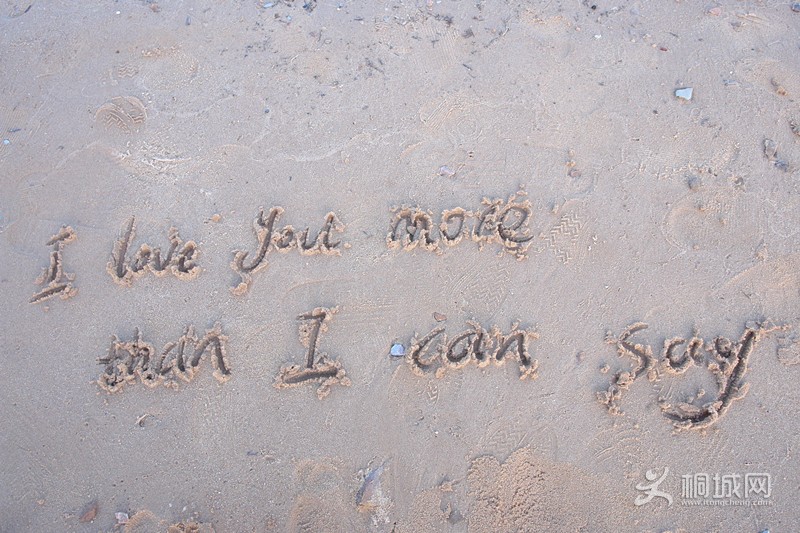 I love you more
than I can say
桐城网
www.itongcheng.com